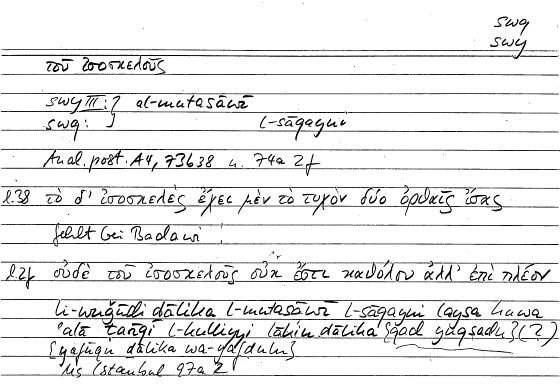 swq
swy
τοῦ ἰσοσκελοῦς
swy III: } al-mutasāwī
swq: } l-sāqayni
Anal. post. A4, 73b38 u. 74a 2f
l.38 τὸ δ' ἰσοσκελὲς ἔχει μὲν τὸ τυχὸν δύο ὀρθαῖς ἴσας
fehlt bei Badawi!
l.2f οὐδὲ τοῦ ἰσοσκελοῦς οὐκ ἔστι καθόλου ἀλλ' ἐπὶ πλέον
li-wuǧūdi ḏālika l-mutasāwī l-sāqayni laysa huwa
ʿalā l-kulliyyi lākin ḏālika (?)
ḏālika
Ms Istanbul 97a 2